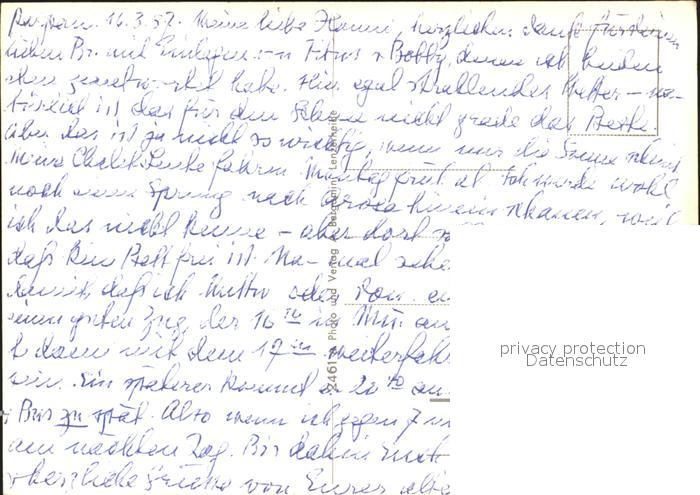 16.3.57. Meine liebe Hanni, herzlichen Dank für Deinen
lieben Br. mit Einlagen von Titus u Bobby, denen ich beiden
schon geantwortet habe. Hier egal strahlendes Wetter – na-
türlich ist das für den Schnee nicht grade das Beste.
Aber das ist ja nicht so wichtig, wenn nur die Sonne scheint.
Meine Chalet Leute fahren Montag früh ab. Ich werde wohl
noch einen Sprung nach Arosa hinein schauen, weil
ich das nicht kenne – aber dort
daß kein Bett frei ist. Na – mal sehen
damit, daß ich
einen guten Zug, der 16 in Mü. an
u dann mit dem 17 weiterfahr
Ein späterer kommt 20 an
Bus zu spät. Also wenn ich gegen 7
am nächsten Tag. Bis dahin Euch
herzliche Grüße von Eurer alte
24611 Photo und Verlag A. Bergamin, Lenzerheide
privacy protection
Datenschutz